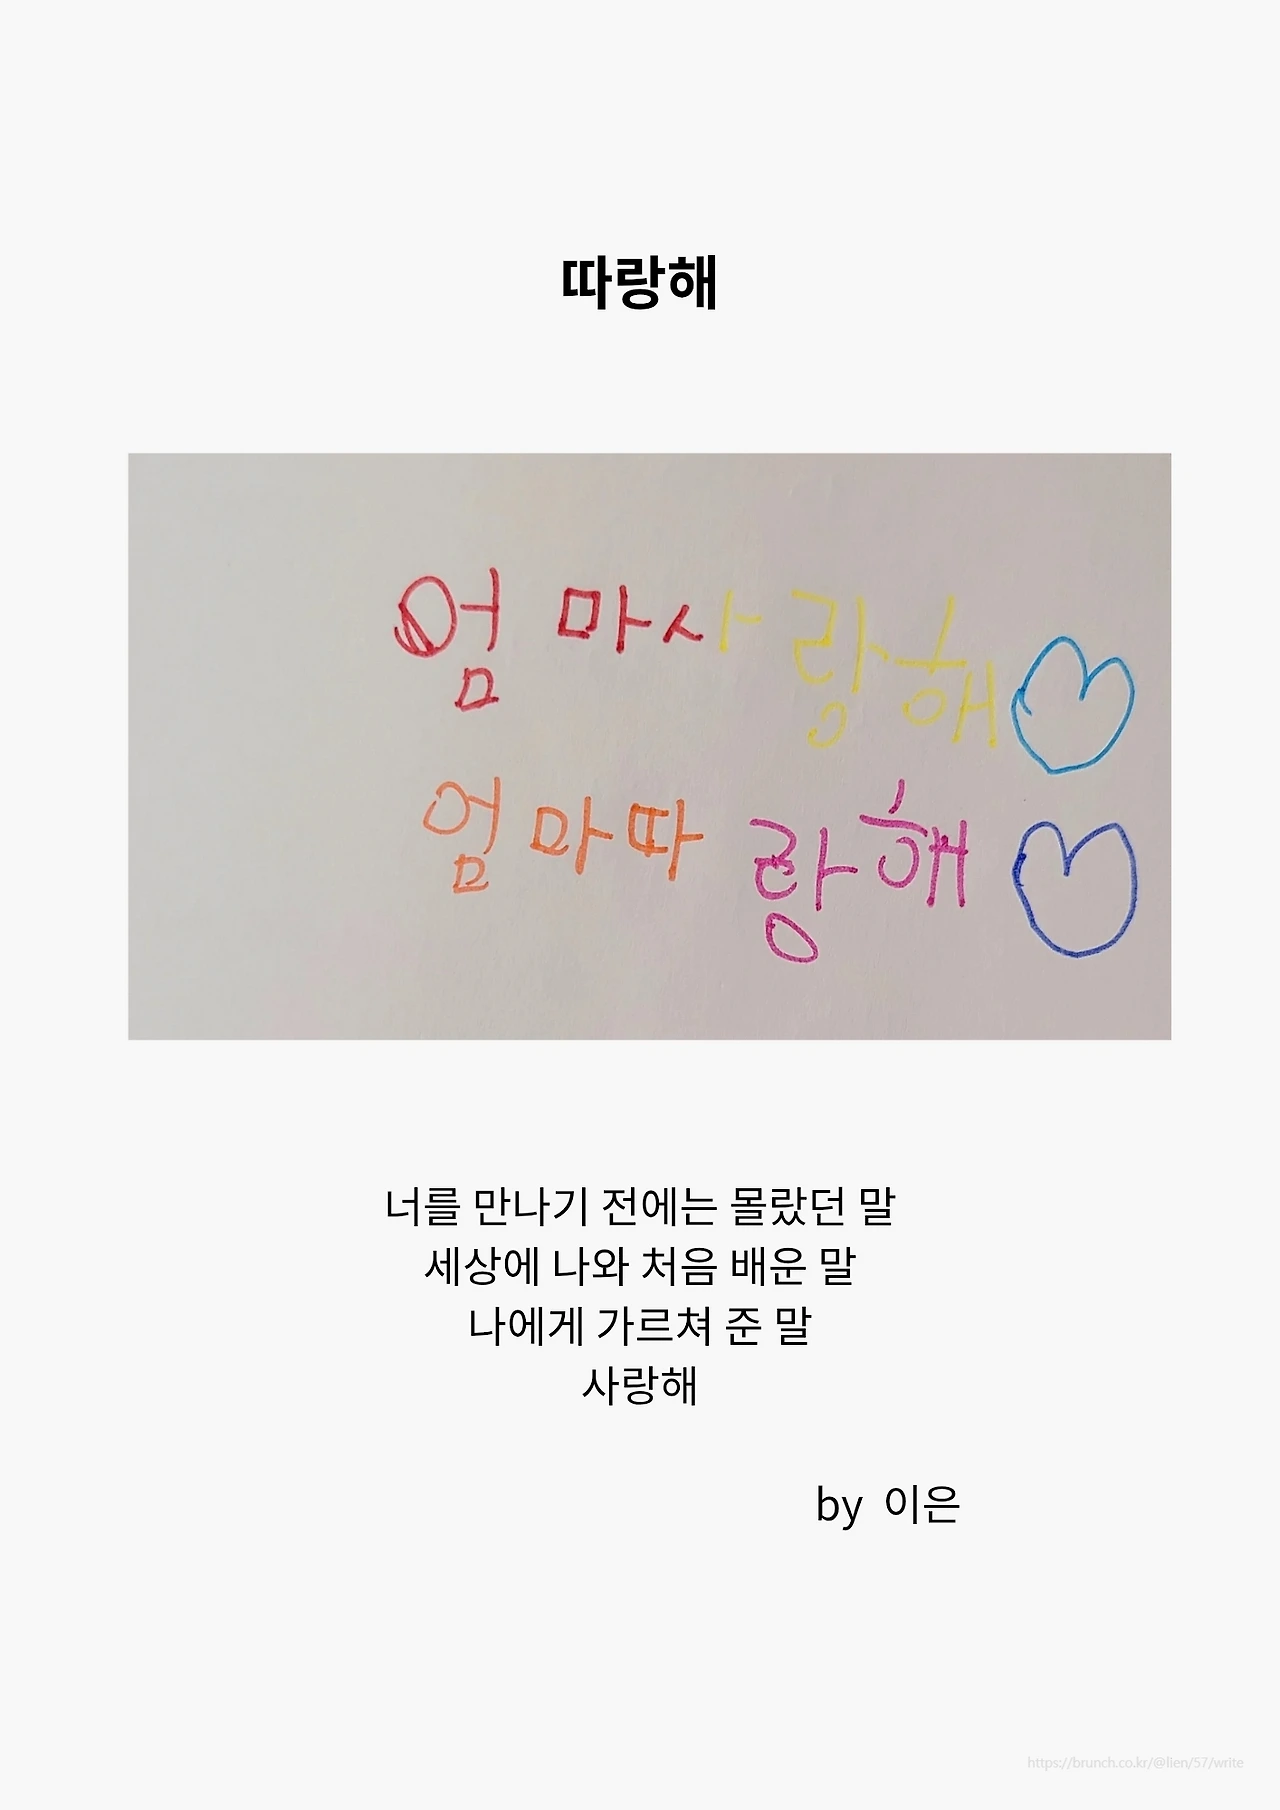 따랑해
엄마사랑해
엄마따랑해
너를 만나기 전에는 몰랐던 말
세상에 나와 처음 배운 말
나에게 가르쳐 준 말
사랑해
by 이은
https://brunch.co.kr/@lien/57/write